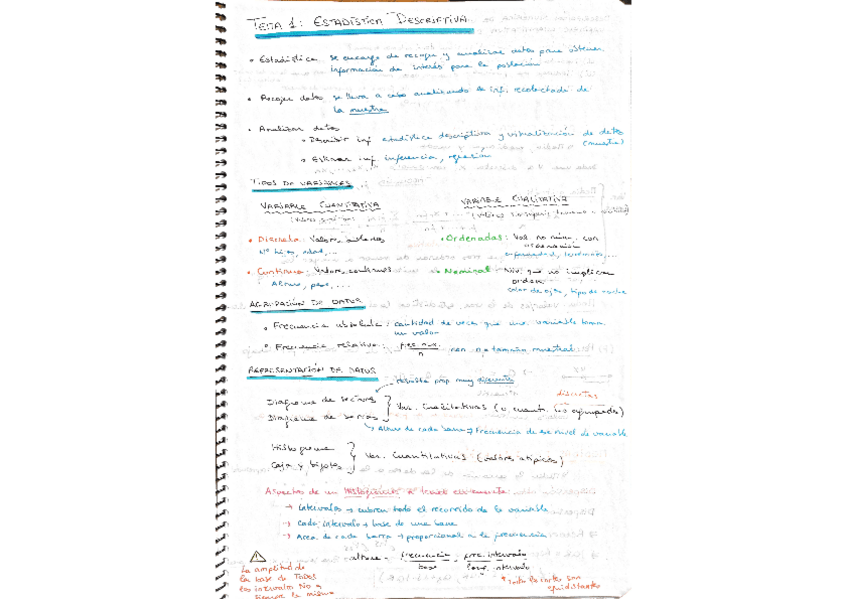 TEMA 1: ESTADÍSTICA DESCRIPTIVA
• Estadística se encarga de recoger y analizar datos para obtener
información de interés para la población
• Recoger datos se lleva a cabo analizando la inf. recolectada de
la muestra
• Analizar datos
• Describir inf. estadística descriptiva y visualización de datos
(muestra)
• Estimar inf. inferencia, regresión
TIPOS DE VARIABLES
VARIABLE CUANTITATIVA
VARIABLE CUALITATIVA
• Discreta: Valores enteros
Nº hijos, edad,...
• Ordenadas: Val. no núm. con
ordenación
enfermedad,
• Continua: Valores continuos
Altura, peso,...
• Nominal: que no implican
orden
color de ojos, tipo de coche
AGRUPACIÓN DE DATOS
• Frecuencia absoluta: cantidad de veces que una variable toma
un valor
• Frecuencia relativa: frec. abs. / n con n = tamaño muestral
REPRESENTACIÓN DE DATOS
resulta prop muy
Diagrama de sectores
Diagrama de barras
Var. Cualitativas (o cuant. no agrupadas)
discretas
→ Altura de cada barra → Frecuencia de ese nivel de variable
Histograma
Caja y bigotes
Var. Cuantitativas (valores atípicos)
Aspectos de un histograma a tener en cuenta
→ Intervalos → cubren todo el recorrido de la variable
→ Cada intervalo → base de una barra
→ Area de cada barra → proporcional a la frecuencia
altura = frecuencia / base = frec. intervalo / long. intervalo
La amplitud de
la base de Todos
los intervalos No
siempre la misma
* todos los cortes son
equidistantes